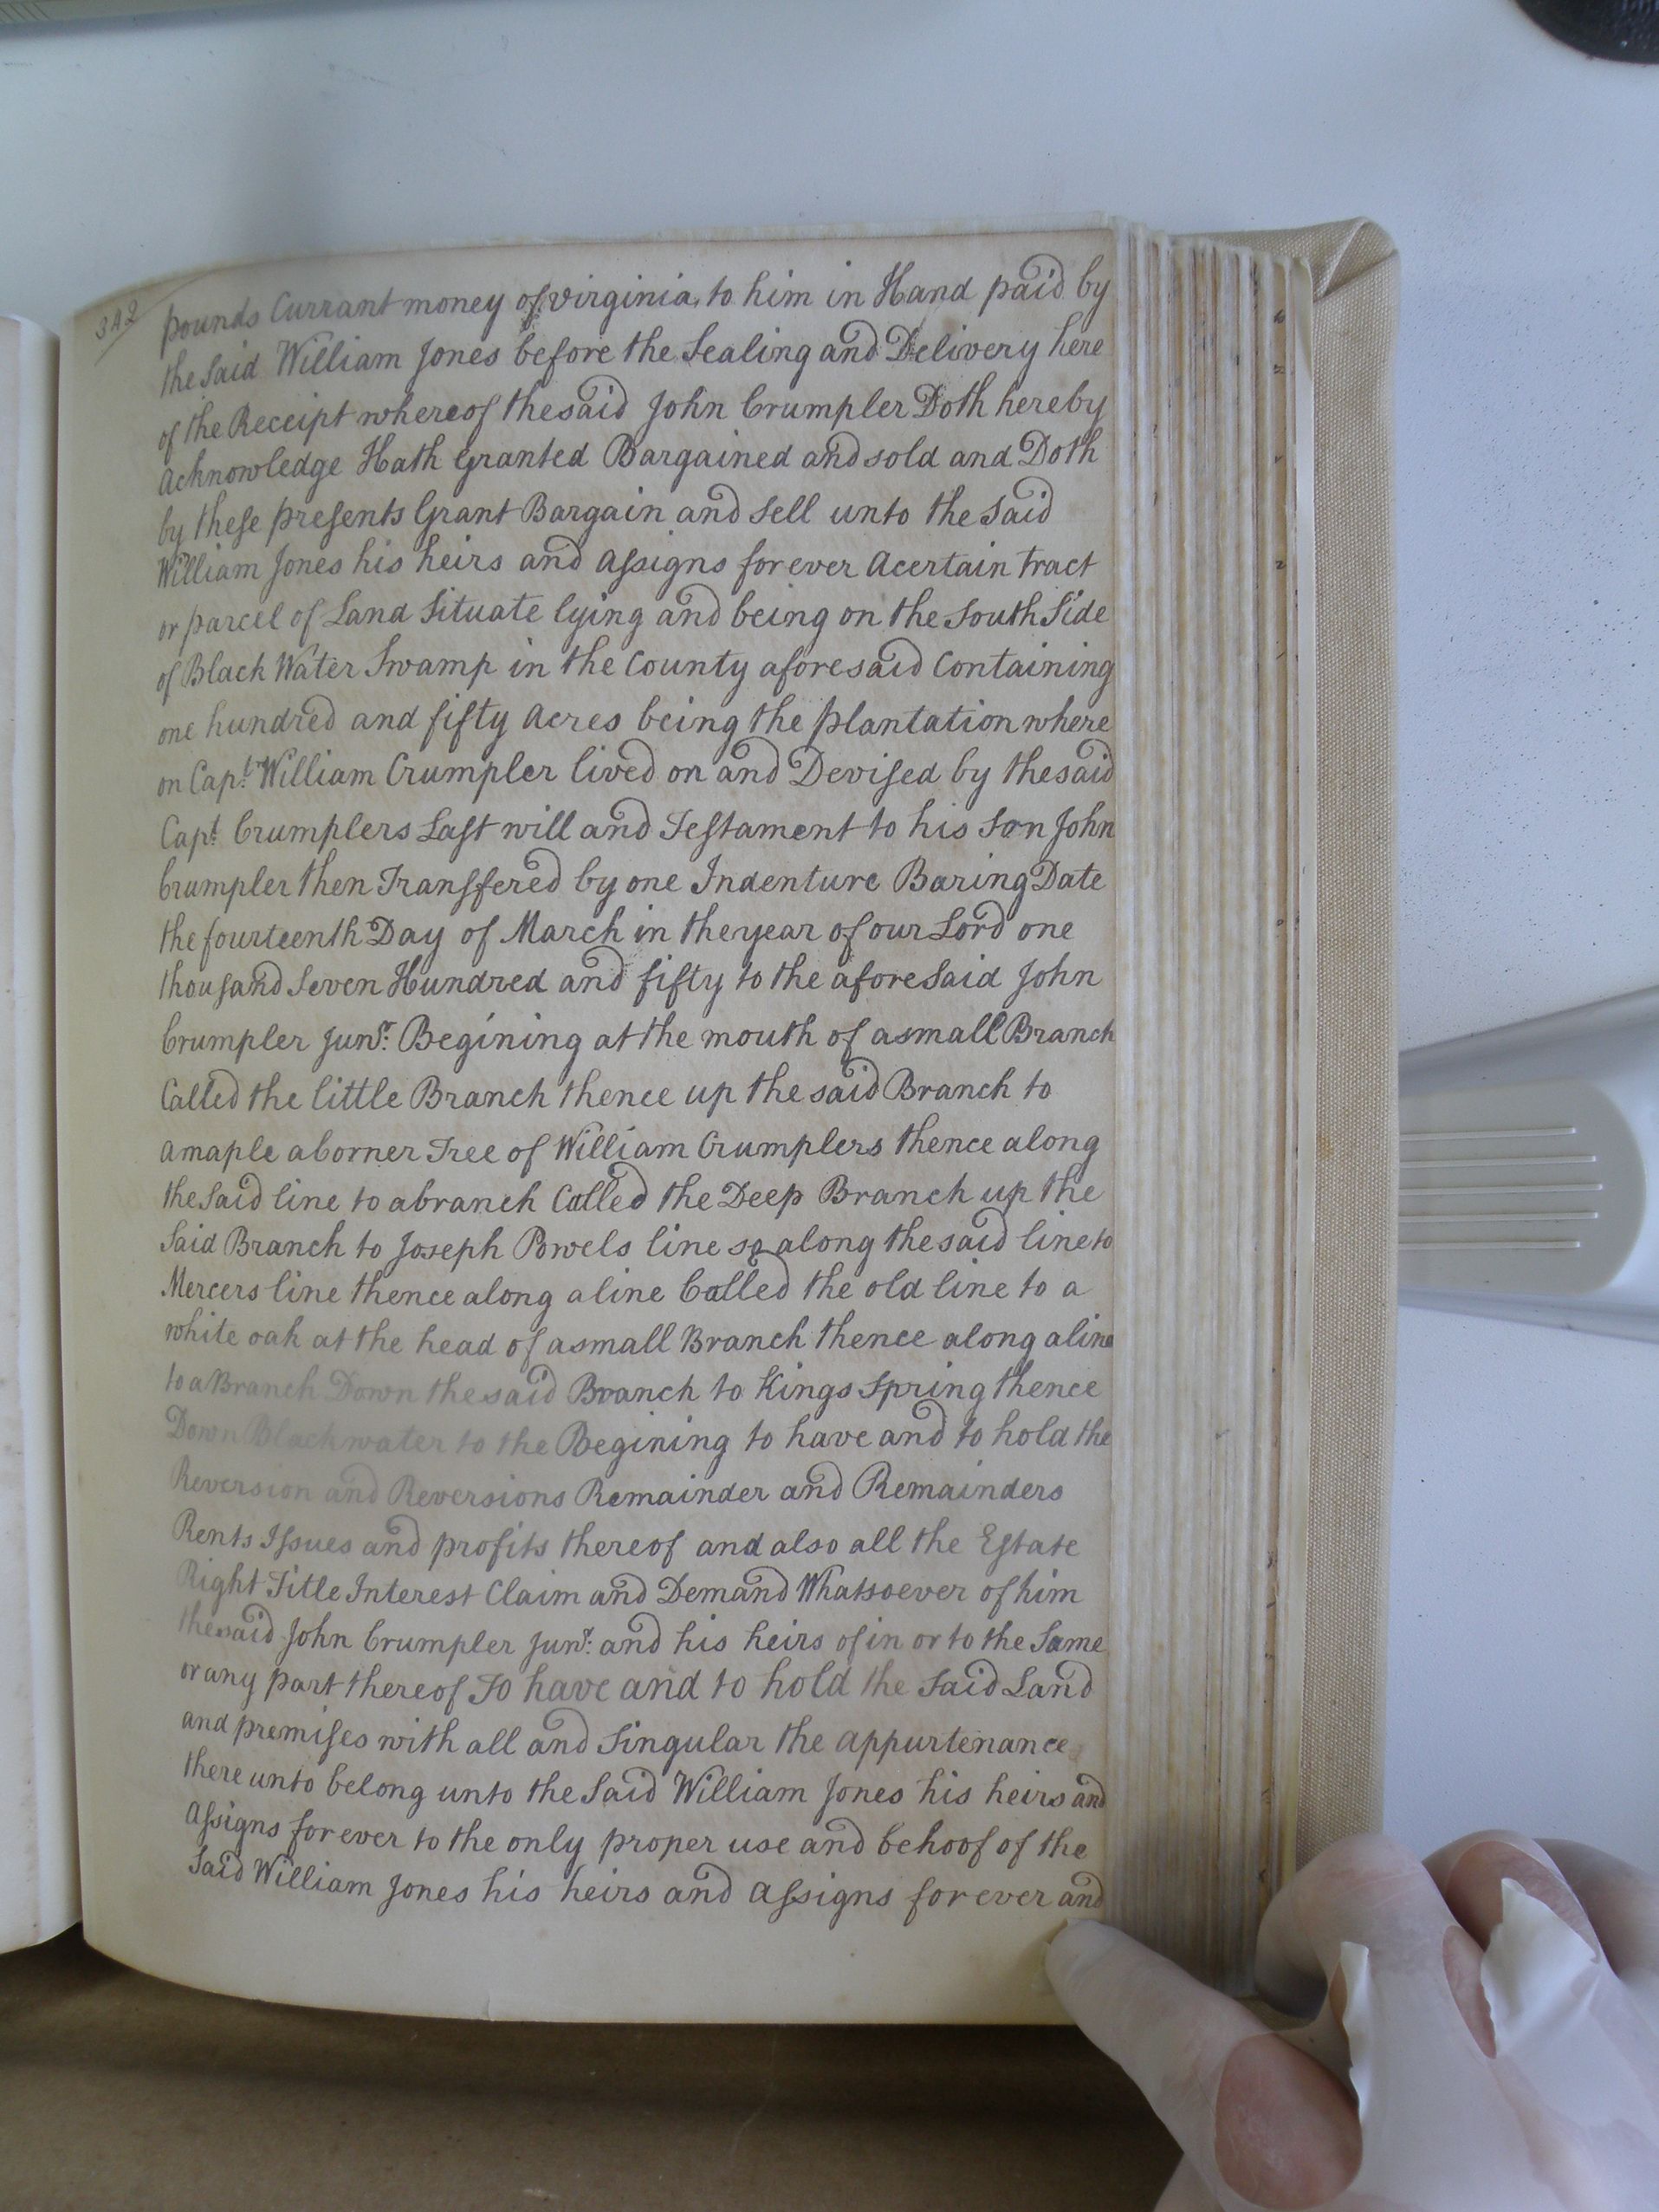 342
pounds Currant money of virginia, to him in Hand paid by
the Said William Jones before the Sealing and Delivery here
of the Receipt whereof the said John Crumpler Doth hereby
acknowledge Hath Granted Bargained and sold and Doth
by these presents Grant Bargain and sell unto the said
William Jones his heirs and assigns for ever a certain tract
or parcel of Land Situate lying and being on the South Side
of Black Water Swamp in the County aforesaid Containing
one hundred and fifty acres being the plantation where
on Capt. William Crumpler lived on and Devised by the said
Capt. Crumplers Last will and Testament to his Son John
Crumpler then Transfered by one Indenture Baring Date
the fourteenth Day of March in the year of our Lord one
thousand Seven Hundred and fifty to the aforesaid John
Crumpler Junr. Begining at the mouth of a small Branch
Called the little Branch thence up the said Branch to
a maple a Corner Tree of William Crumplers thence along
the Said line to a branch Called the Deep Branch up the
Said Branch to Joseph Powels line so along the said line to
Mercers line thence along a line Called the old line to a
white oak at the head of a small Branch thence along a line
to a Branch Down the said Branch to Kings Spring thence
Down Blackwater to the Begining to have and to hold the
Reversion and Reversions Remainder and Remainders
Rents Issues and profits thereof and also all the Estate
Right Title Interest Claim and Demand Whatsoever of him
the said John Crumpler Junr. and his heirs of in or to the Same
or any part thereof To have and to hold the Said Land
and premises with all and Singular the appurtenance
there unto belong unto the Said William Jones his heirs and
Assigns for ever to the only proper use and behoof of the
Said William Jones his heirs and assigns for ever and